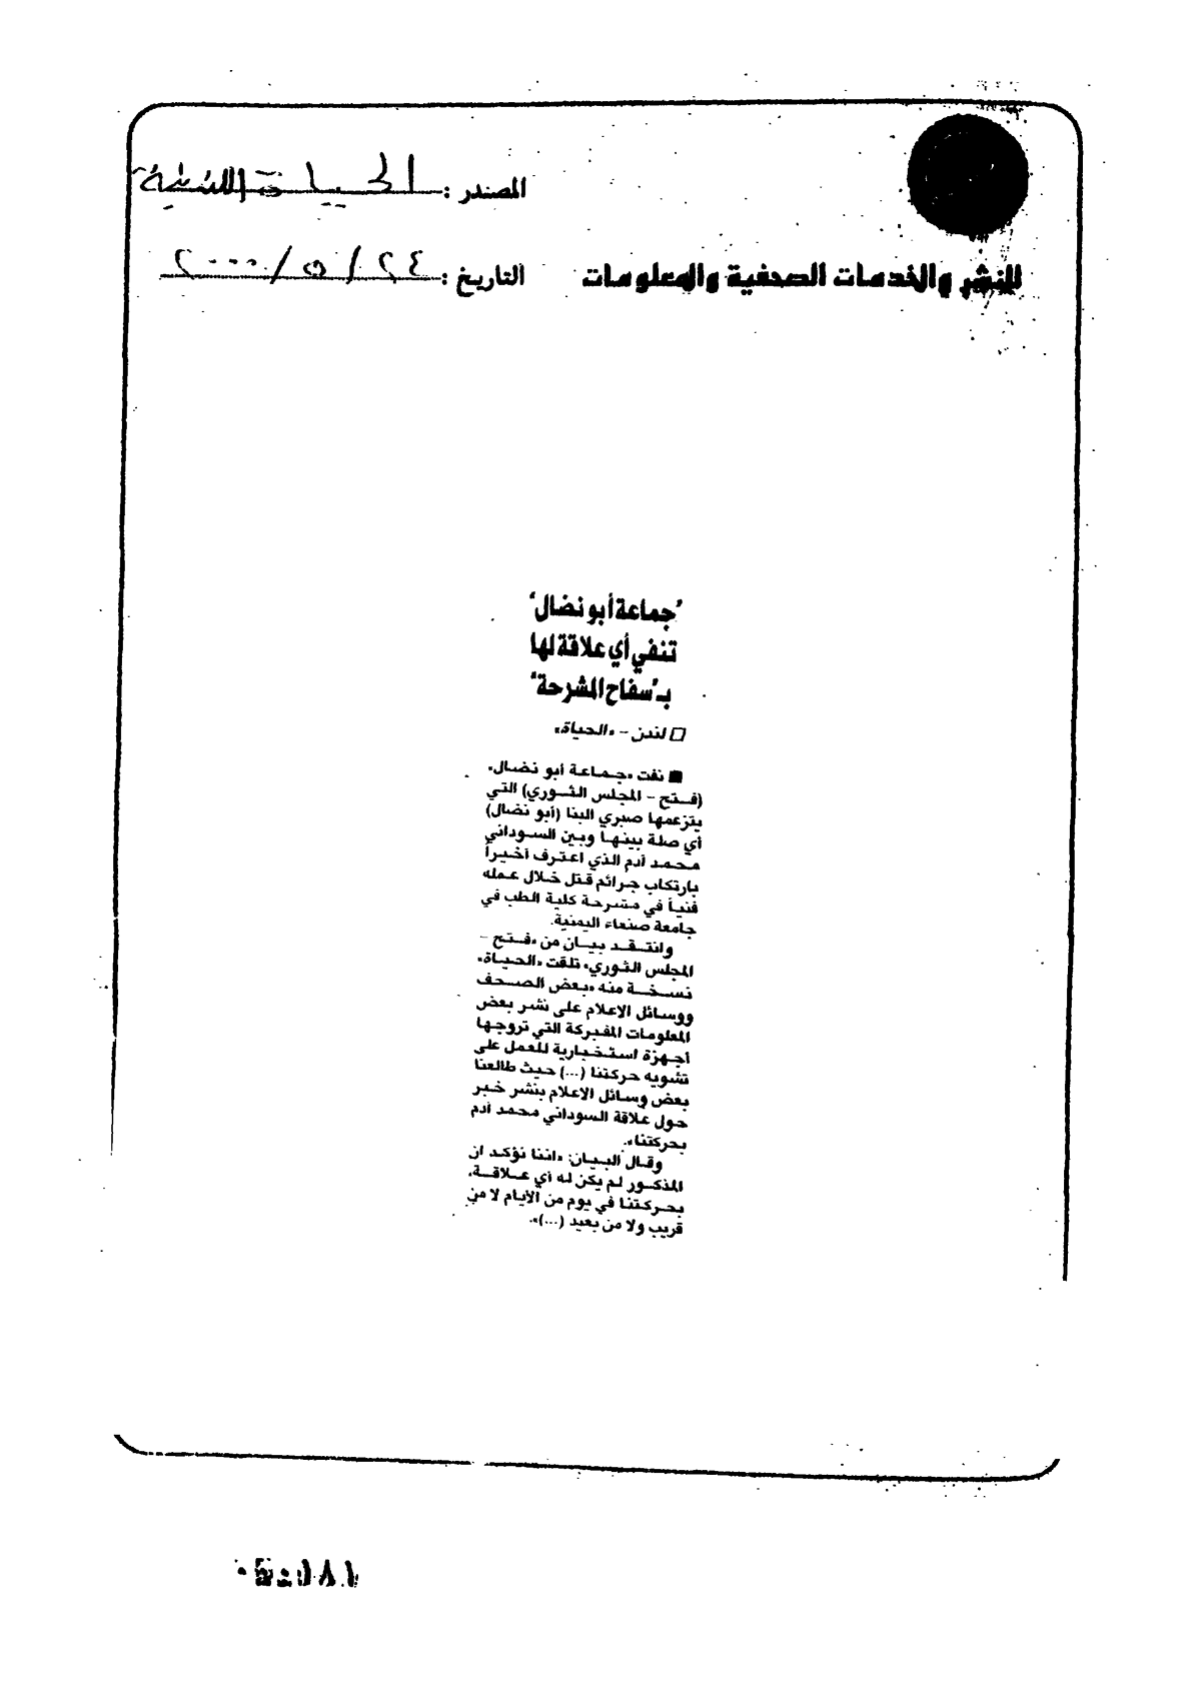 المصدر : الحياة اللندنية
للنشر والخدمات الصحفية والمعلومات
التاريخ : ٢٤ / ٥ / ٢٠٠٠
"جماعة أبو نضال"
تنفي أي علاقة لها
بـ"سفاح المشرحة"
□ لندن – «الحياة»
■ نفت «جماعة أبو نضال»
(فتح – المجلس الثوري) التي
يتزعمها صبري البنا (أبو نضال)
أي صلة بينها وبين السوداني
محمد آدم الذي اعترف أخيراً
بارتكاب جرائم قتل خلال عمله
فنياً في مشرحة كلية الطب في
جامعة صنعاء اليمنية.
وانتقد بيان من «فتح –
المجلس الثوري» تلقت «الحياة»
نسخة منه «بعض الصحف
ووسائل الاعلام على نشر بعض
المعلومات المفبركة التي تروجها
اجهزة استخبارية للعمل على
تشويه حركتنا (...) حيث طالعنا
بعض وسائل الاعلام بنشر خبر
حول علاقة السوداني محمد آدم
بحركتنا».
وقال البيان: «اننا نؤكد ان
المذكور لم يكن له أي علاقة،
بحركتنا في يوم من الأيام لا من
قريب ولا من بعيد (...)».